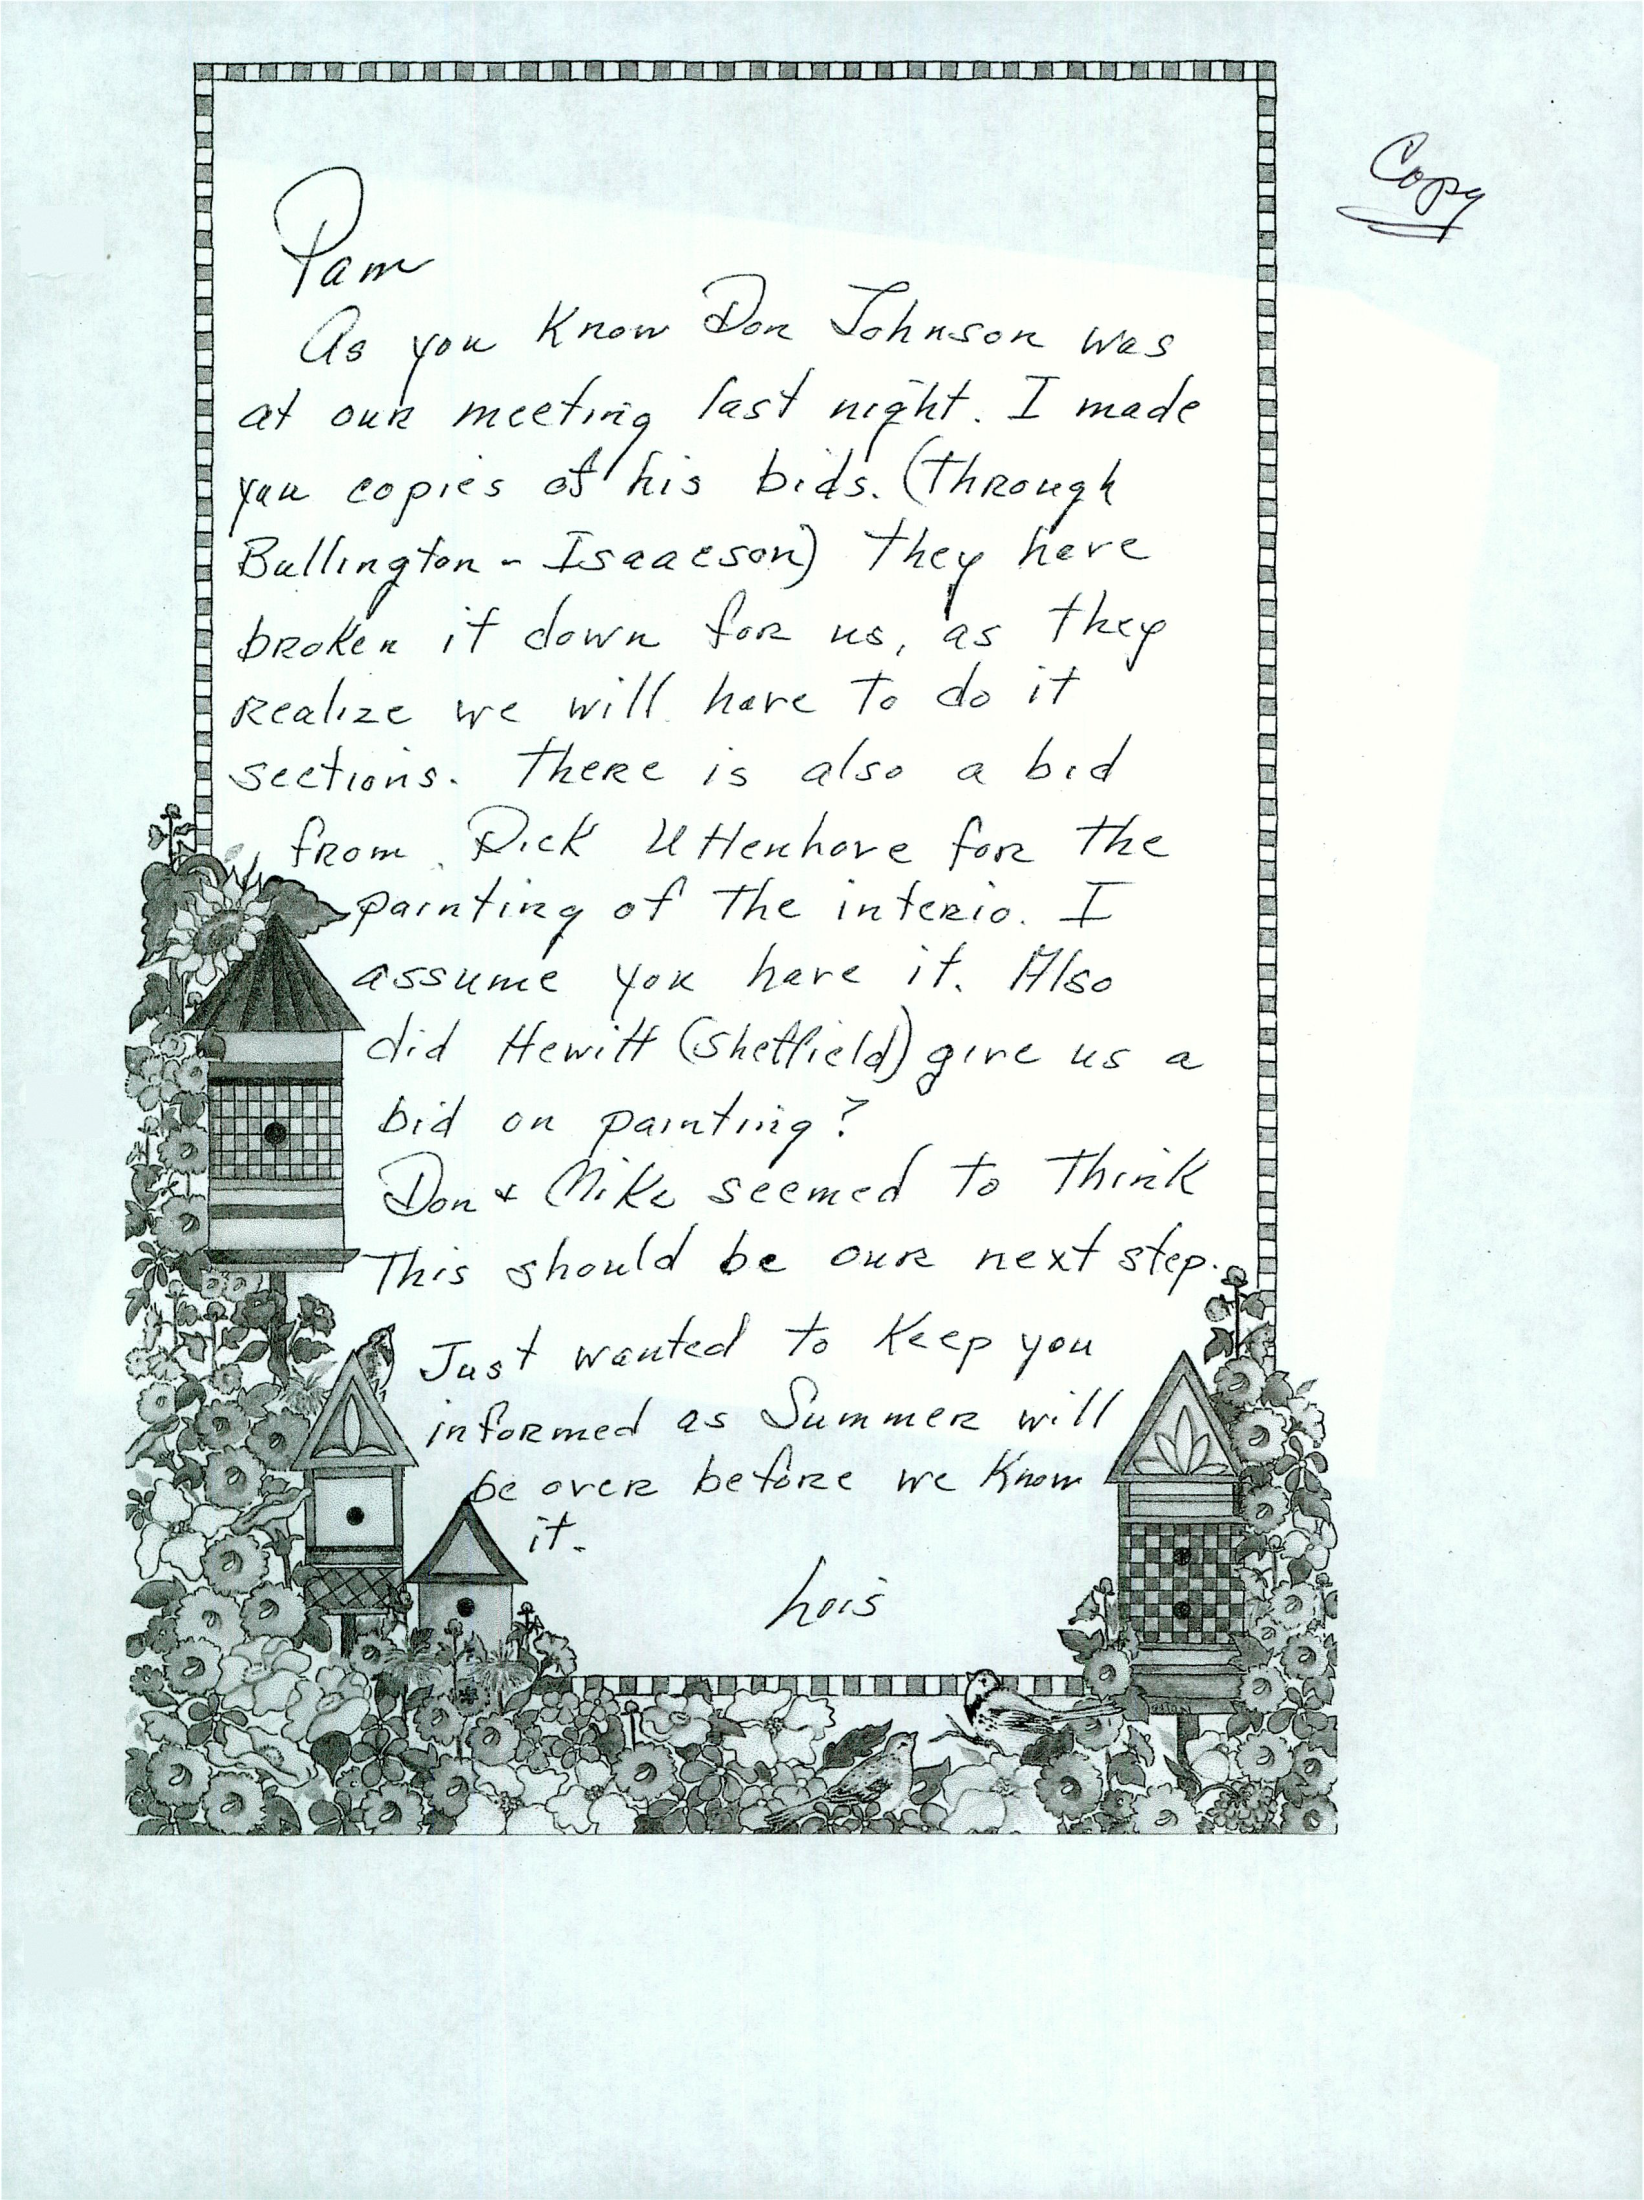 Copy
Pam
As you know Don Johnson was
at our meeting last night. I made
you copies of his bids. (Through
Bullington - Isaacson) They have
broken it down for us, as they
realize we will have to do it
sections. There is also a bid
from Dick Uttenhove for the
painting of the interio. I
assume you have it. Also
did Hewitt (Sheffield) give us a
bid on painting?
Don & Mike seemed to think
This should be our next step.
Just wanted to keep you
informed as Summer will
be over before we know
it.
Lois